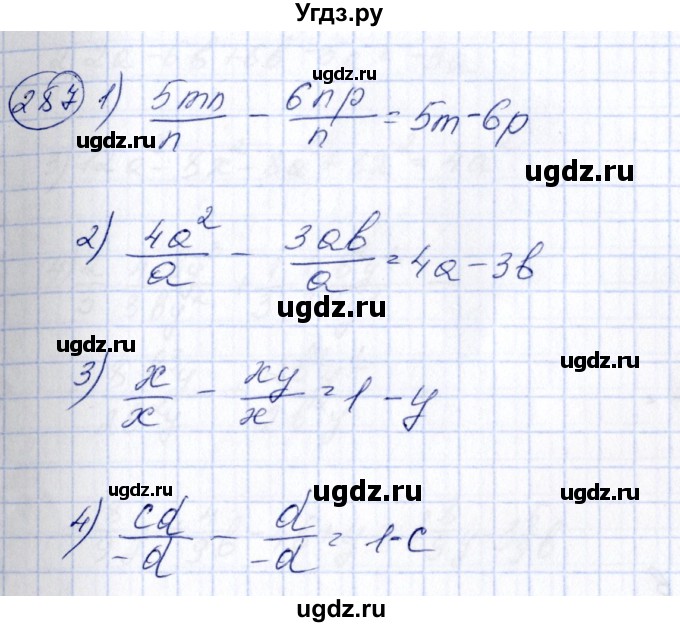 Угдз.ру
287 1) 5mn/n - 6np/n = 5m - 6p
ugdz.ru ugdz.ru ugdz.ru
2) 4a²/a - 3ab/a = 4a - 3b
ugdz.ru ugdz.ru
ugdz.ru ugdz.ru
3) x/x - xy/x = 1 - y
ugdz.ru ugdz.ru ugdz.ru
4) cd/-d - d/-d = 1 - c
ugdz.ru
ugdz.ru